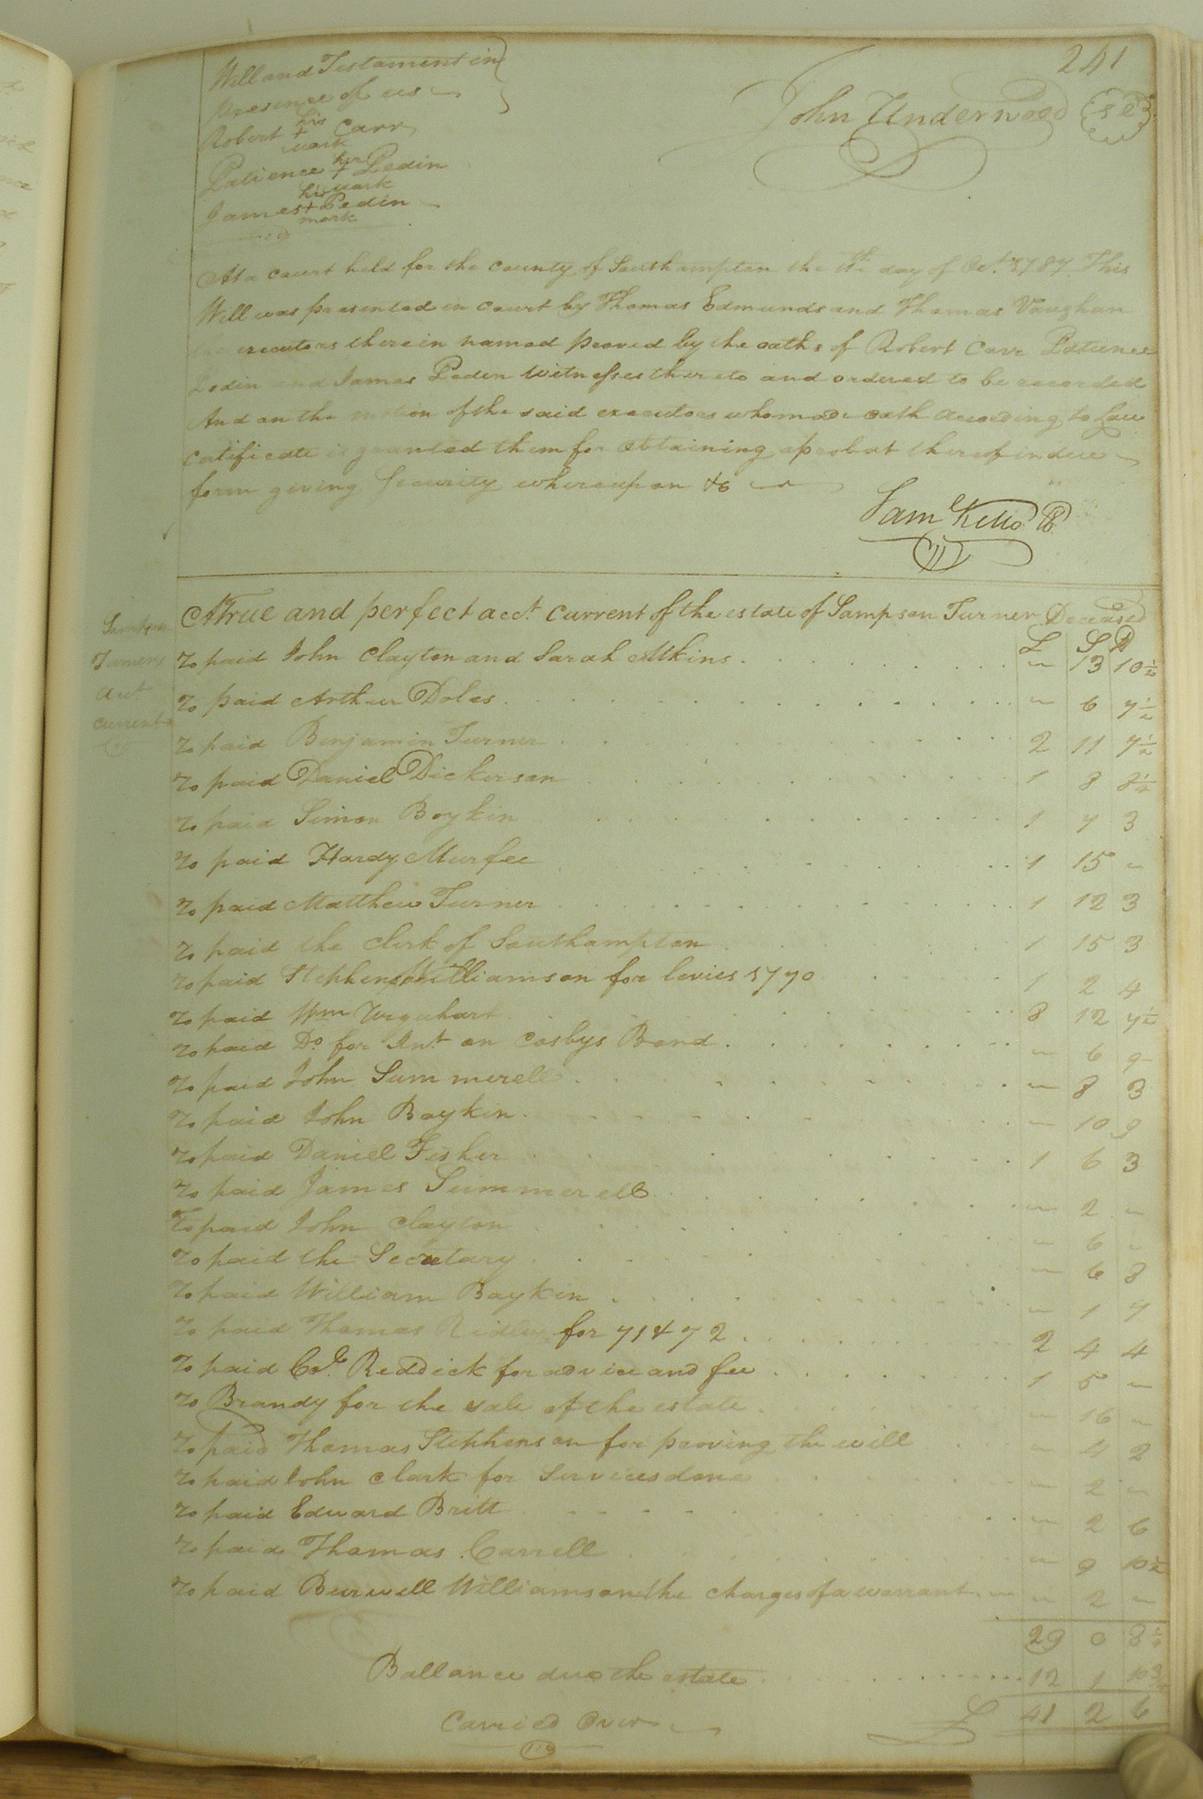 241
Will and Testament in
presence of us
John Underwood
Robert his + mark Carr
Patience her + mark Pedin
James his + mark Pedin
At a court held for the county of Southampton the day of Oct. 1787 This
Will was presented in court by Thomas Edmunds and Thomas Vaughan
executors therein named proved by the oaths of Robert Carr Patience
Pedin and James Peden witnesses thereto and ordered to be recorded
And on the motion of the said executors who made oath according to Law
certificate is granted them for obtaining a probat thereof in due
form giving Security whereupon &c
Sam Kello
Sampson
Turners
acct
current
A True and perfect acct. current of the estate of Sampson Turner Deceased
£ S D
To paid John Clayton and Sarah Atkins - 13 10½
To paid Arthur Doles - 6 7½
To paid Benjamin Turner 2 11 7½
To paid Daniel Dickerson 1 8 8½
To paid Simon Boykin 1 7 3
To paid Hardy Murfee 1 15 -
To paid Matthew Turner 1 12 3
To paid the Clerk of Southampton 1 15 3
To paid Stephen Williamson for levies 1770 1 2 4
To paid Wm Urquhart 8 12 7½
To paid Do for Int. on Cosbys Bond - 6 9
To paid John Summerell - 8 3
To paid John Boykin - 10 9
To paid Daniel Fisher 1 6 3
To paid James Summerell - 2 -
To paid John Clayton - 6 -
To paid the Secretary - 6 8
To paid William Boykin - 1 7
To paid Thomas Ridley for 71 & 72 2 4 4
To paid Reddick for advice and fee 1 5 -
To Brandy for the sale of the estate - 16 -
To paid Thomas Stephenson for prooving the will - 4 2
To paid John Clark for Services done - 2 -
To paid Edward Britt - 2 6
To paid Thomas Carrell - 9 10½
To paid Burwell Williamson the charges of a warrant - 2 -
29 0 8½
Ballance due the estate 12 1 10¾
Carried over £ 41 2 6